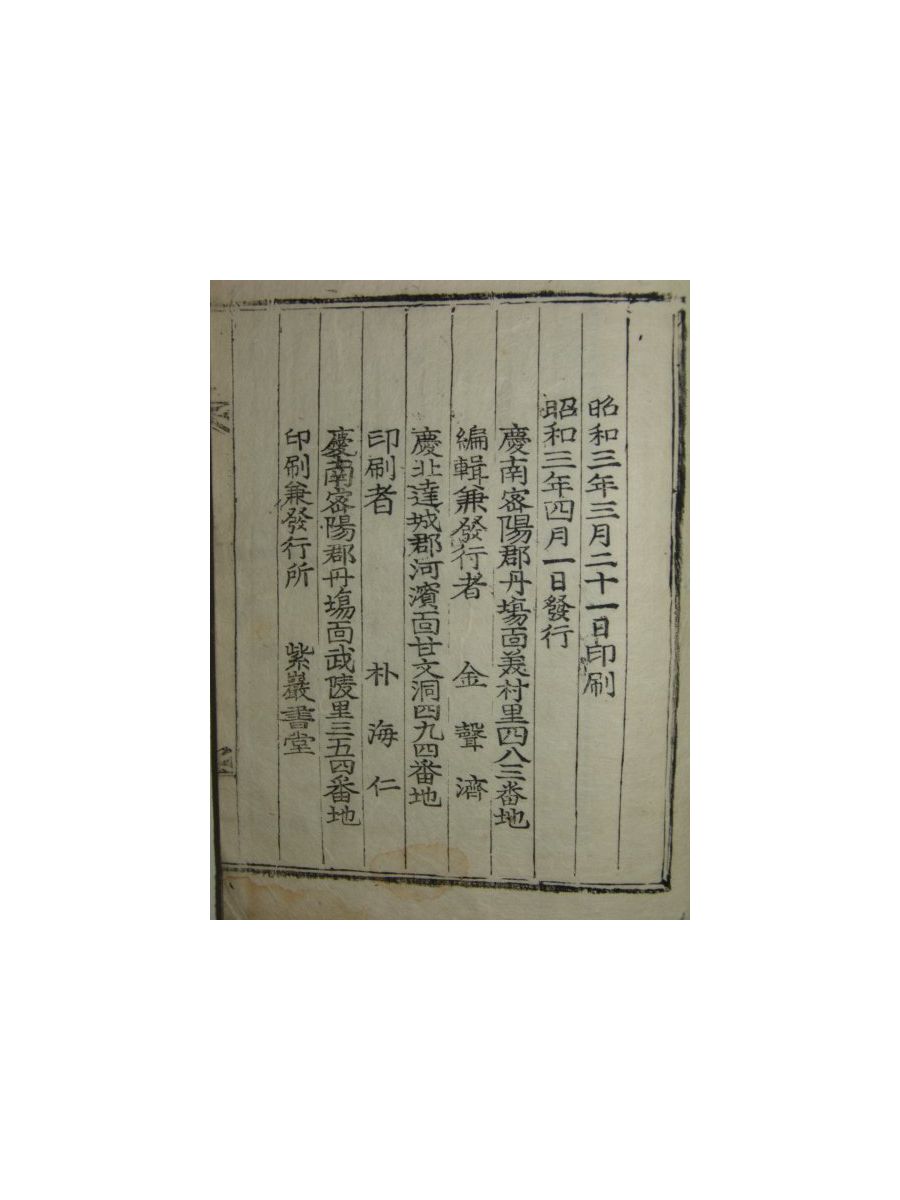 昭和三年三月二十一日印刷
昭和三年四月一日發行
慶南密陽郡丹塲面美村里四八三番地
編輯兼發行者 金聲濟
慶北達城郡河濱面甘文洞四九四番地
印刷者 朴海仁
慶南密陽郡丹塲面武陵里三五四番地
印刷兼發行所 紫巖書堂